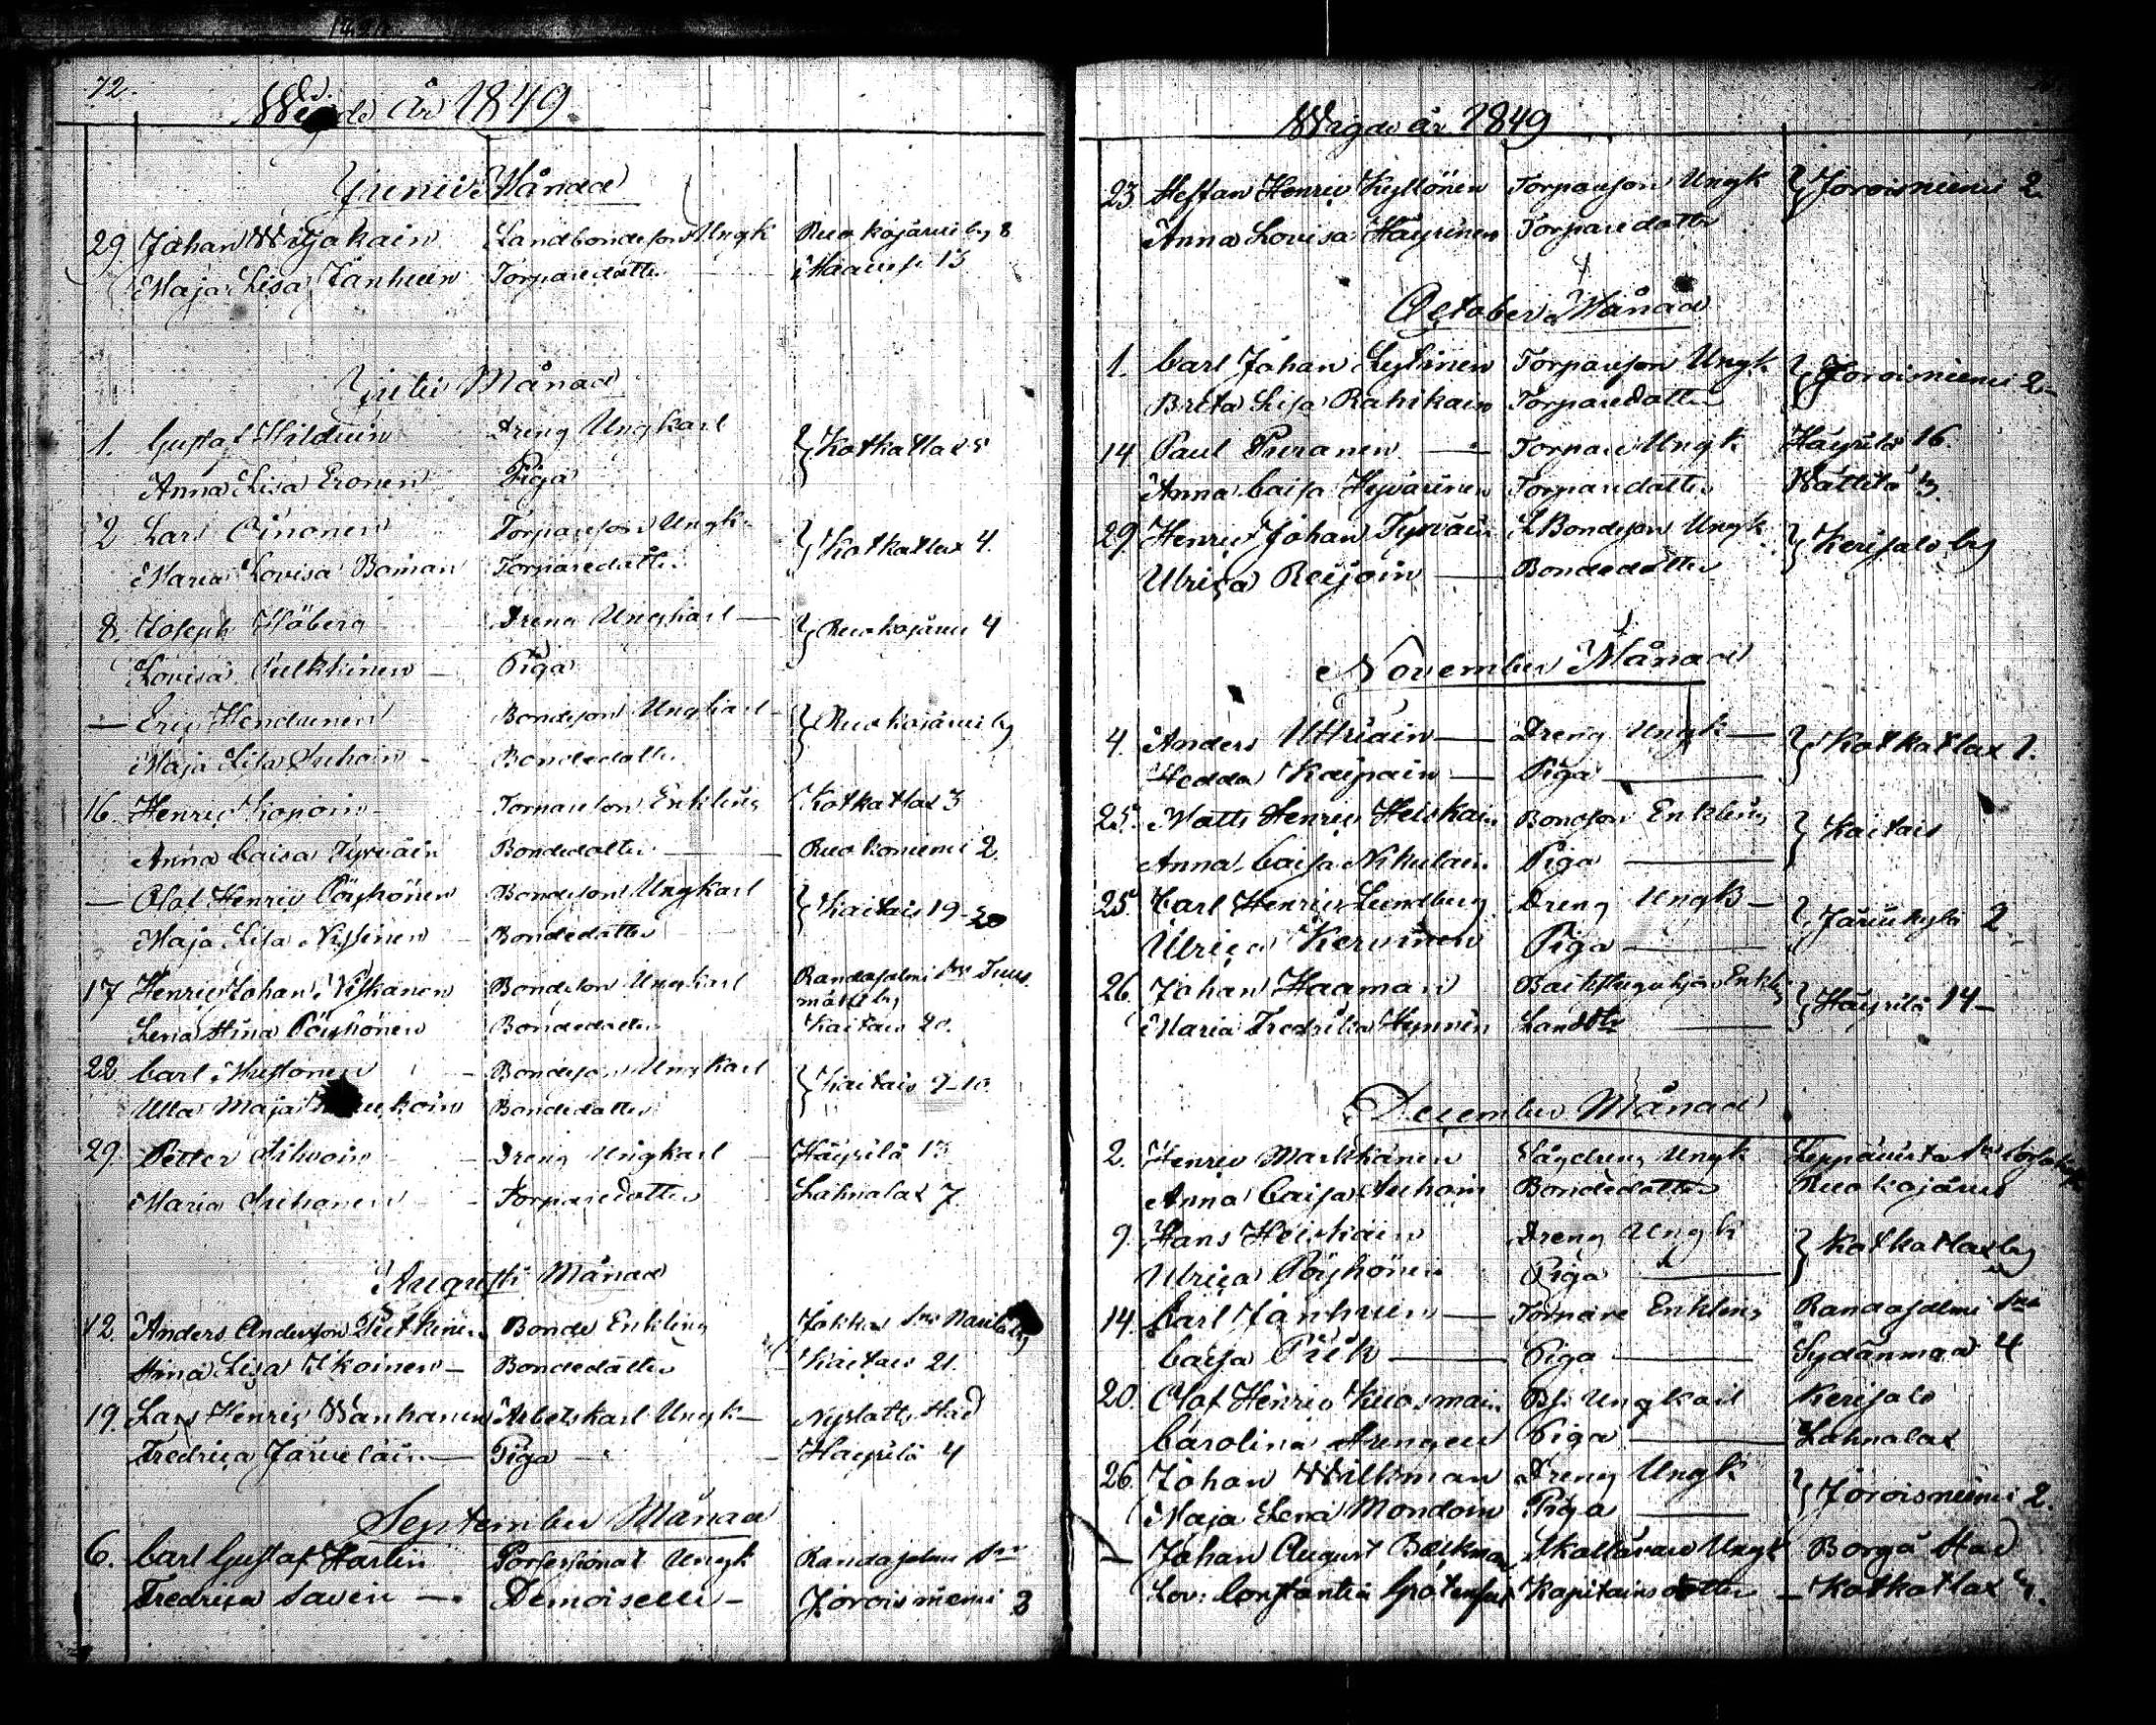 72.
Wigde år 1849
Junii Månad
29 Johan Wirjakain Landbondeson Ungk Ruokojärvi by 8
Maja Lisa Tanhuin Torparedotter 13
Julii Månad
1. Gustaf Hilduin Dreng Ungkarl } Kotkatlax 5
Anna Lisa Eronen Piga
2 Lars Oinonen Torpareson Ungk. } Kotkatlax 4.
Maria Lovisa Boman Torparedotter
8. Joseph Höberg Dreng Ungkarl } Ruokojärvi 4
Lovisa Pulkkinen Piga
— Eric Bondeson Ungkarl } Ruokojärvi by
Maja Lisa Auhoin Bondedotter
16. Henric Kopoin Torpareson Enkling Kotkatlax 3
Anna Caisa Tyrväin Bondedotter Ruokoniemi 2.
— Olof Henric Pöyhönen Bondeson Ungkarl } Kaitais 19-20
Maja Lisa Nissinen Bondedotter
17 Henric Johan Niskanen Bondeson Ungkarl Randasalmi Sn
mäki by
Lena Stina Pöyhönen Bondedotter Kaitais 20.
22 Carl Mustonen Bondeson Ungkarl } Kaitais 9-10.
Ulla Maja Bondedotter
29. Petter Sihvoin Dreng Ungkarl Häyrilä 13
Maria Auhonen Torparedotter Lahnalax 7.
Augusti Månad
12. Anders Andersson Putkinen Bonde Enkling Jokkas Sn
Stina Lisa Ikoinen Bondedotter Kaitais 21.
19. Lars Henric Wanhanen Arbetskarl Ungk Nyslotts Stad
Fredrica Järveläin Piga Häyrilä 4
September Månad
6. Carl Gustaf Harlin Ungk Randasalmi Sn
Fredrica Savén Demoiselle Joroisniemi 3
Wigde år 1849
23 Staffan Henric Kyllönen Torpareson Ungk } Joroisniemi 2
Anna Lovisa Häyrinen Torparedotter
October Månad
1. Carl Johan Lyytinen Torpareson Ungk } Joroisniemi 2
Brita Lisa Rahikain Torparedotter
14 Paul Puranen Torpare Ungk Häyrilä 16.
Anna Caisa Hyvärinen Torparedotter Wättilä 3.
29. Henric Johan Tyrväin L Bondeson Ungk } Kerisalo by
Ulrica Reijoin Bondedotter
November Månad
4. Anders Uttriain Dreng Ungk } Kotkatlax 1.
Hedda Kaipain Piga
25. Matts Henric Heiskain Bondson Enkling } Kaitais
Anna Caisa Nikulain Piga
25. Carl Henric Lundberg Dreng Ungk } Järvikylä 2
Ulrica Kervinen Piga
26. Johan Haaman Enkling } Häyrilä 14
Maria Fredrika Hynnin
December Månad
2. Henric Markkanen Ungk Leppävirta Sn
Anna Caisa Auhoin Bondedotter Ruokojärvi
9. Hans Heiskain Dreng Ungk } Kotkatlax by
Ulrica Pöyhönen Piga
14. Carl Janhuen Torpare Enkling Randasalmi Sn
Caisa Piik Piga Sydänmaa 4
20. Olof Henric Kuosmain Ungkarl Kerisalo
Carolina Piga Lahnalax
26. Johan Willman Dreng Ungk } Joroisniemi 2.
Maja Lena Mondoin Piga
— Johan August Beckman Skollärare Ungk Borgå Stad
Lov: Constantia Grotenfelt Kapitainsdotter Kotkatlax 4.